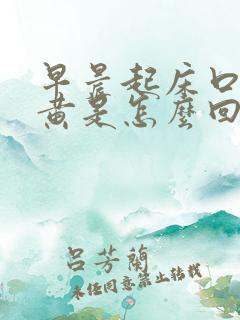 早晨起床口
黄是怎麽回
吕芳蘭
未经同意禁止转载